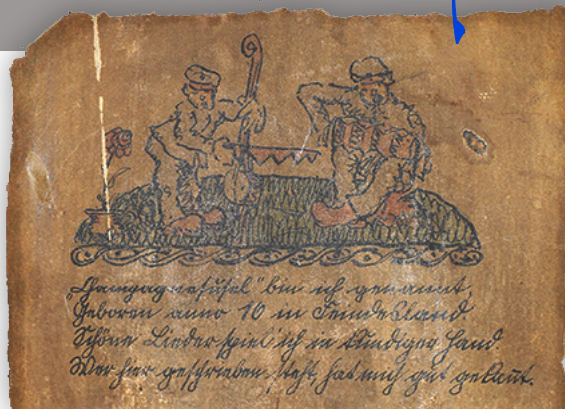 „Champagnefusel“ bin ich genannt,
Geboren anno 16 in Feindesland.
Schöne Lieder spiel ich in kundiger Hand.
Wer hier geschrieben steht, hat mich gut gekannt.